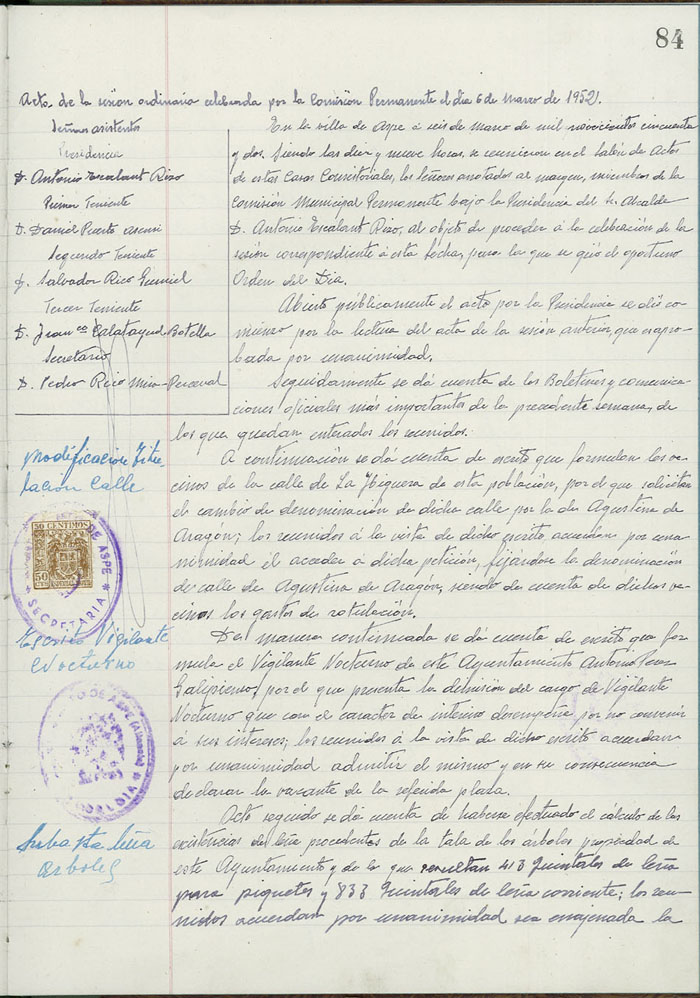 84
Acta de la sesion ordinaria celebrada por la Comisión Permanente el dia 6 de Marzo de 1952.
Señores asistentes
Presidencia
D. Antonio Escalant Rizo
Primer Teniente
D. Daniel Puerto Asensi
Segundo Teniente
D. Salvador Rico Gumiel
Tercer Teniente
D. Franco Calatayud Botella
Secretario
D. Pedro Rico Mira-Perceval
En la villa de Aspe á seis de marzo de mil novecientos cincuenta
y dos. Siendo las diez y nueve horas, se reunieron en el Salón de Actos
de estas Casas Consistoriales, los señores anotados al margen, miembros de la
Comisión Municipal Permanente bajo la Presidencia del Sr. Alcalde
D. Antonio Escalant Rizo, al objeto de proceder á la celebración de la
sesión correspondiente á esta fecha, para la que se fijó el oportuno
Orden del Dia.
Abierto publicamente el acto por la Presidencia se dió co-
mienzo por la lectura del acta de la sesión anterior, que es apro-
bada por unanimidad.
Seguidamente se dá cuenta de los Boletines y comunica-
ciones oficiales más importantes de la precedente semana, de
los que quedan enterados los reunidos.
Modificacion
Calle
A continuación se dá cuenta de escrito que formulan los ve-
cinos de la calle de La Higuera de esta población, por el que solicitan
el cambio de denominación de dicha calle por la de Agustina de
Aragón; los reunidos á la vista de dicho escrito acuerdan por una-
nimidad el acceder a dicha petición, fijándose la denominación
de calle de Agustina de Aragón, siendo de cuenta de dichos ve-
cinos los gastos de rotulación.
50 CENTIMOS
50
DE ASPE
SECRETARIA
Escrito Vigilante
Nocturno
De manera continuada se dá cuenta de escrito que for-
mula el Vigilante Nocturno de este Ayuntamiento Antonio
por el que presenta la dimisión del cargo de Vigilante
Nocturno que con el caracter de interino desempeña por no convenir
á sus intereses; los reunidos á la vista de dicho escrito acuerdan
por unanimidad admitir el mismo y en su consecuencia
declarar la vacante de la referida plaza.
DE ASPE (Alicante)
ALCALDIA
Subasta leña
arboles
Acto seguido se dá cuenta de haberse efectuado el cálculo de las
existencias de leña procedentes de la tala de los árboles propiedad de
este Ayuntamiento y de la que resultan 413 Quintales de leña
para piquetes y 833 Quintales de leña corriente; los reu-
nidos acuerdan por unanimidad sea enajenada la